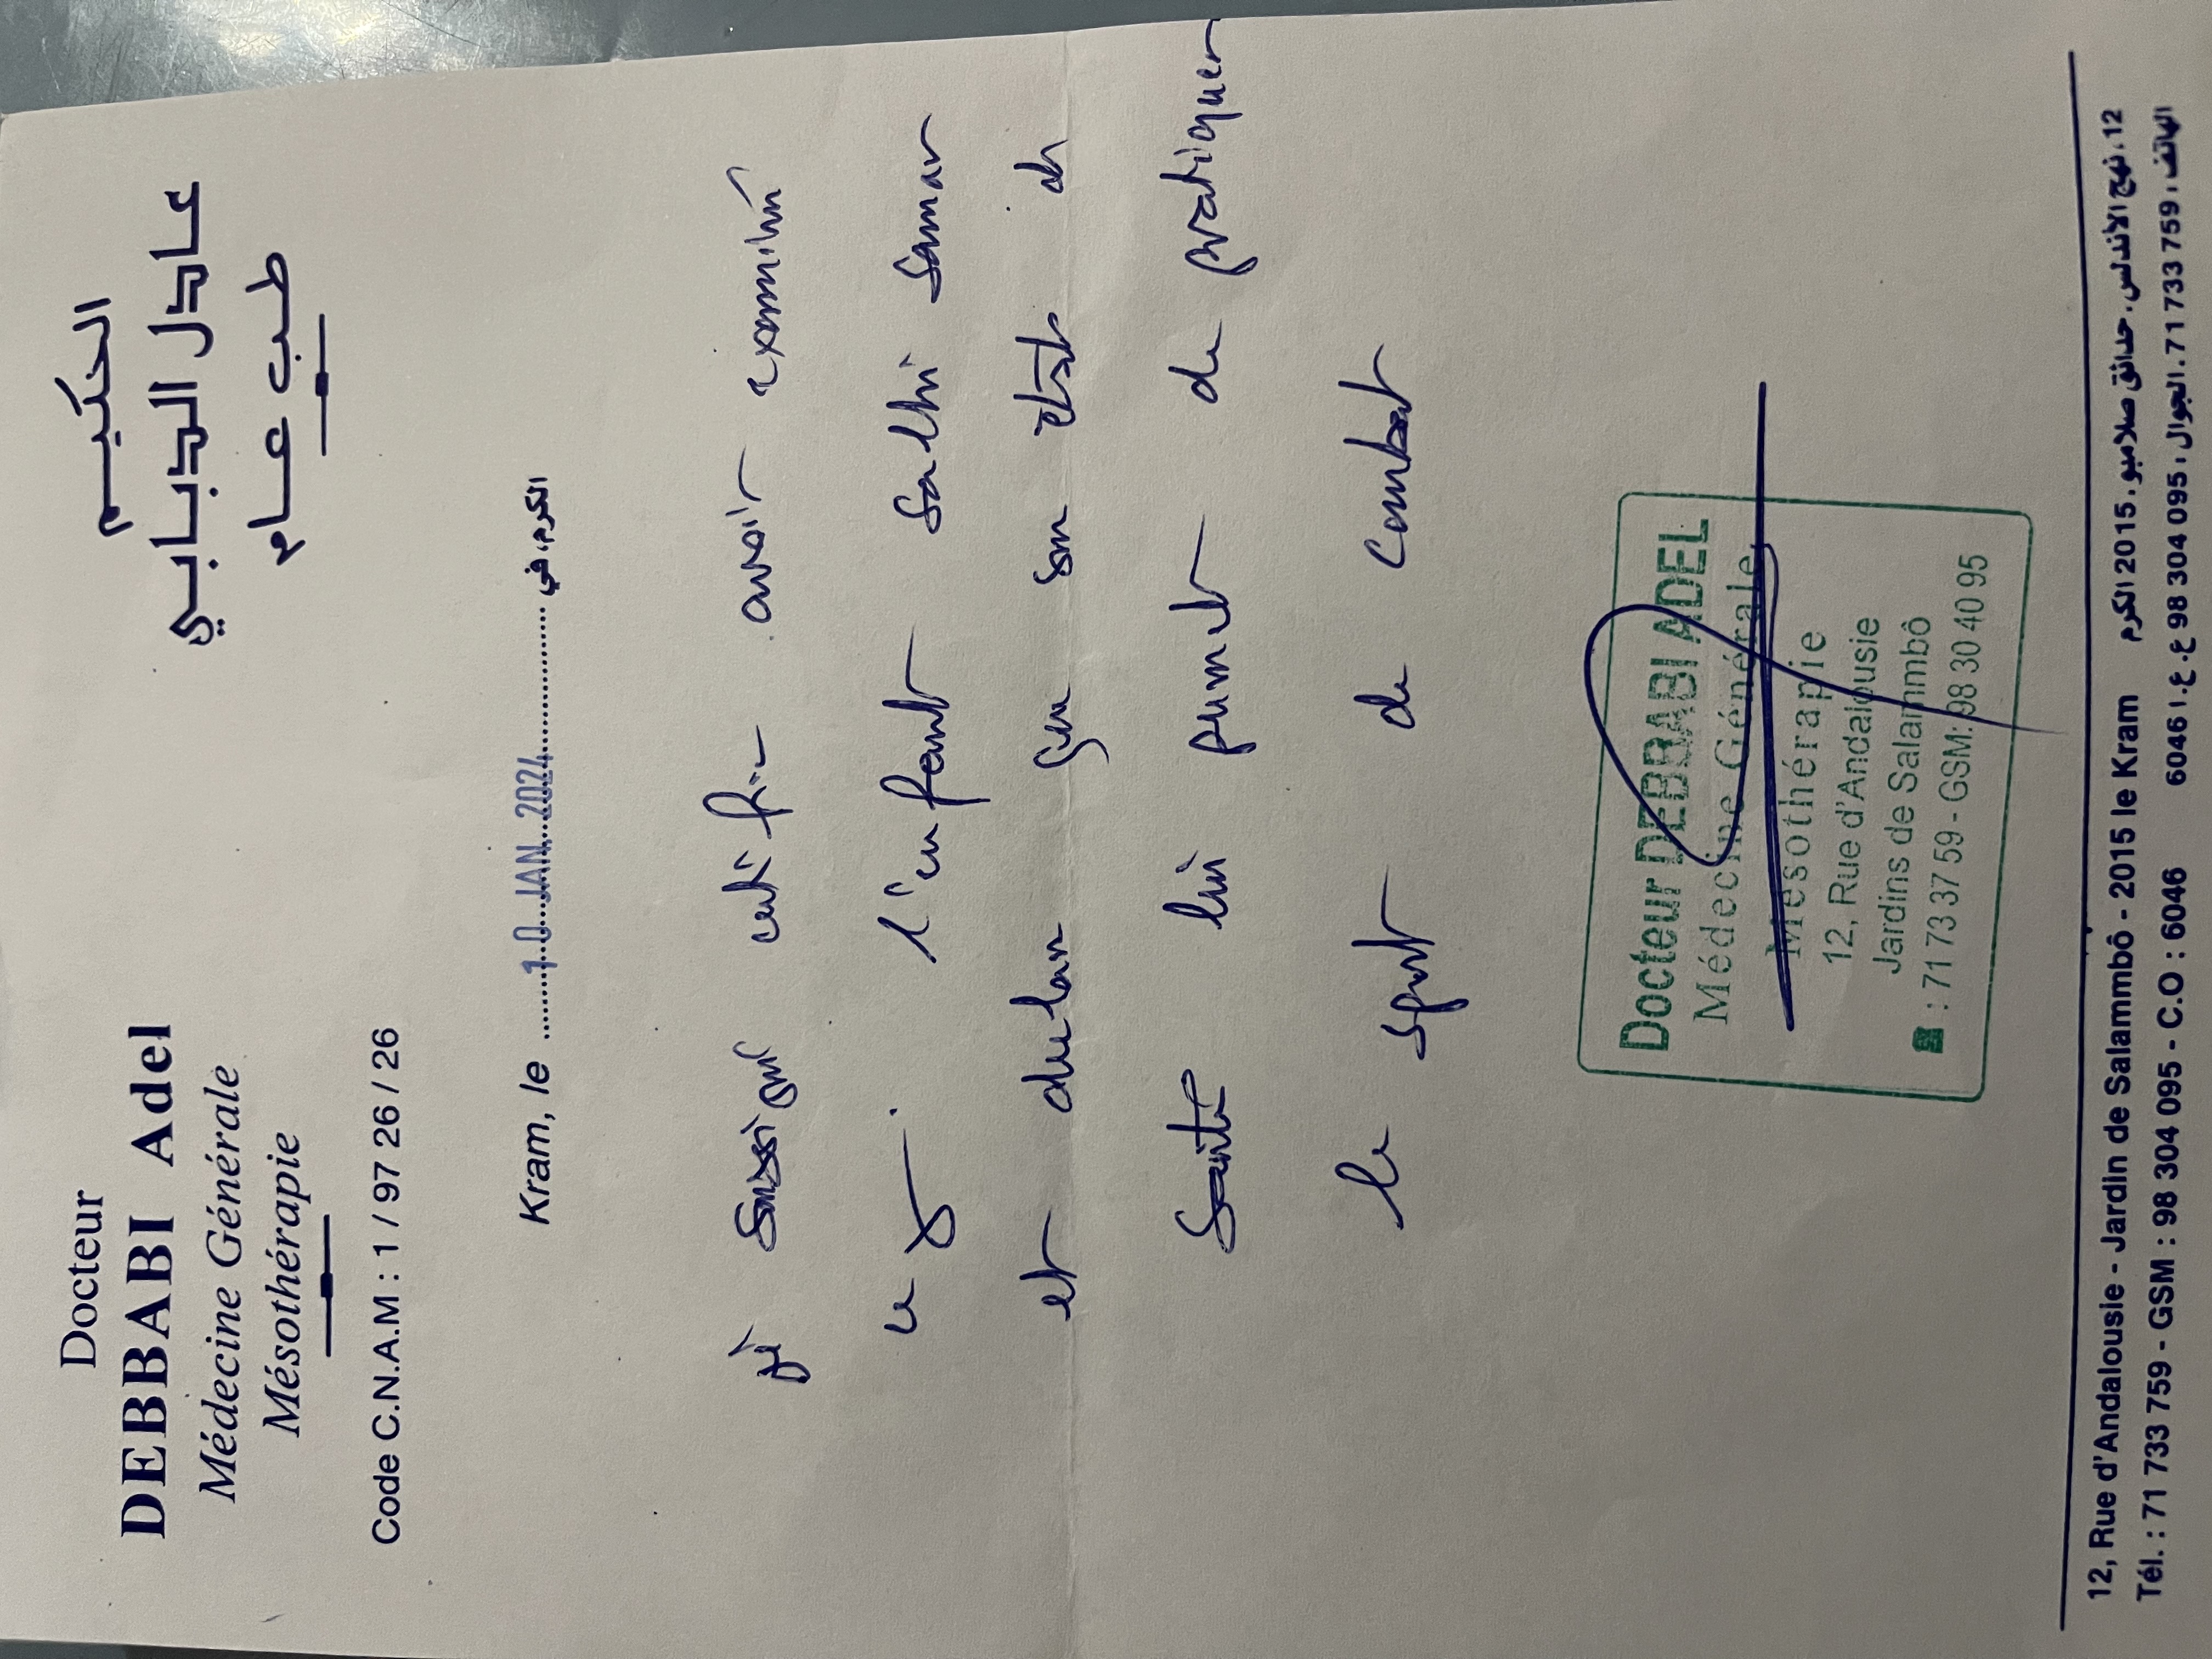 Docteur
DEBBABI Adel
Médecine Générale
Mésothérapie
Code C.N.A.M : 1 / 97 26 / 26
الحكيم
عادل الدبابي
طب عام
Kram, le 10 JAN. 2024 الكرم، في
je soussigné certifie avoir examiné
ce jour l'enfant Salhi Samar
et declare que son état de
Santé lui permet de pratiquer
le sport de combat
Docteur DEBBABI ADEL
Médecine Générale
Mésothérapie
12, Rue d'Andalousie
Jardins de Salammbô
: 71 73 37 59 - GSM: 98 30 40 95
12, Rue d'Andalousie - Jardin de Salambô - 2015 le Kram 12، نهج الأندلس، حدائق صلامبو، 2015 الكرم
Tél. : 71 733 759 - GSM : 98 304 095 - C.O : 6046 الهاتف : 71 733 759، الجوال : 98 304 095 ع.ع : 6046